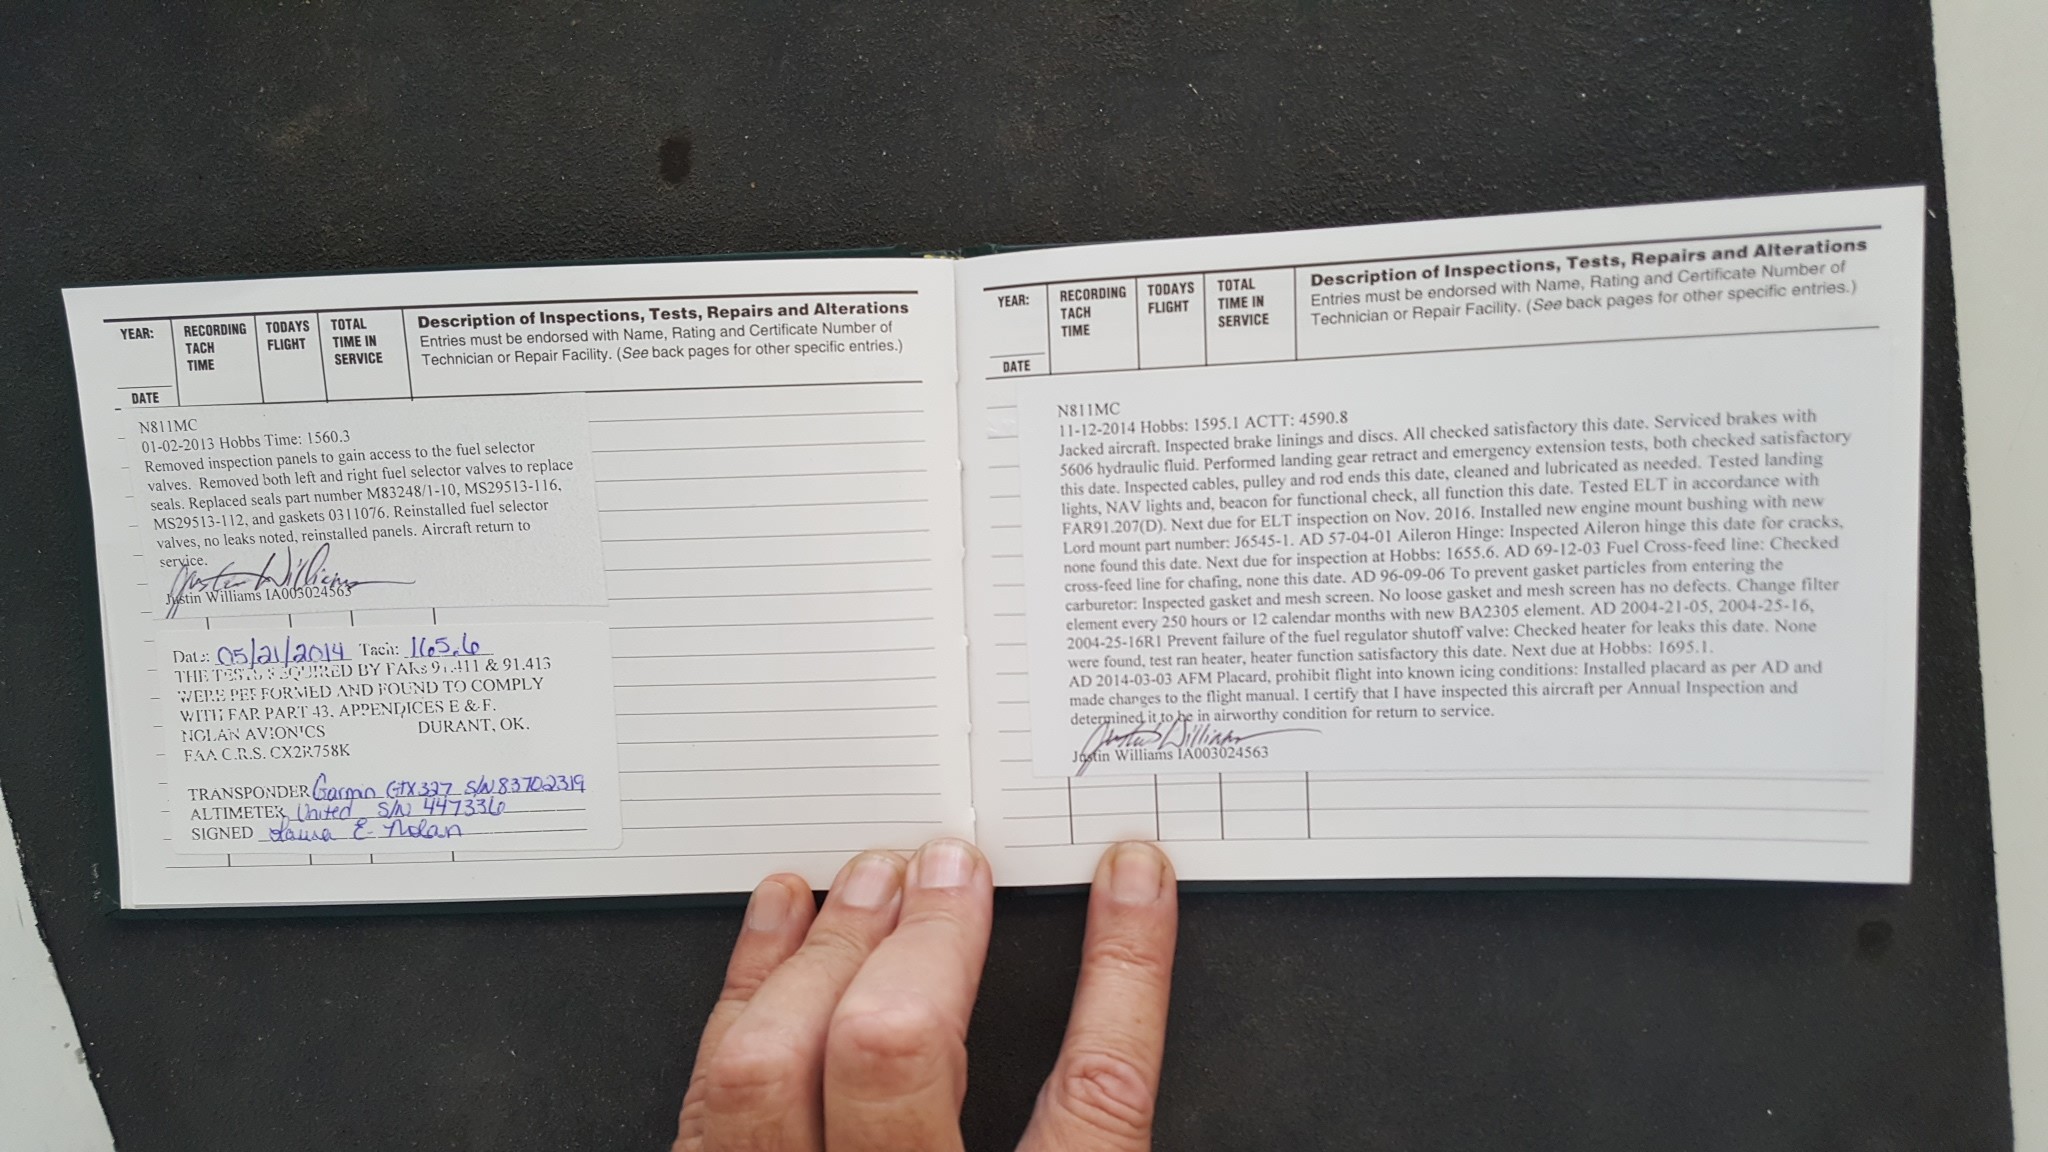 YEAR:
DATE
RECORDING
TACH
TIME
TODAYS
FLIGHT
TOTAL
TIME IN
SERVICE
Description of Inspections, Tests, Repairs and Alterations
Entries must be endorsed with Name, Rating and Certificate Number of
Technician or Repair Facility. (See back pages for other specific entries.)
N811MC
01-02-2013 Hobbs Time: 1560.3
Removed inspection panels to gain access to the fuel selector
valves. Removed both left and right fuel selector valves to replace
seals. Replaced seals part number M83248/1-10, MS29513-116,
MS29513-112, and gaskets 0311076. Reinstalled fuel selector
valves, no leaks noted, reinstalled panels. Aircraft return to
service.
Justin Williams
Justin Williams IA003024563
Date: 05/21/2014 Tach: 165.6
THE TESTS REQUIRED BY FARs 91.411 & 91.413
WERE PERFORMED AND FOUND TO COMPLY
WITH FAR PART 43. APPENDICES E & F.
NOLAN AVIONICS DURANT, OK.
FAA C.R.S. CX2R758K
TRANSPONDER Garmin GTX327 S/N 83702319
ALTIMETER United S/N 447336
SIGNED Laura E. Nolan
YEAR:
DATE
RECORDING
TACH
TIME
TODAYS
FLIGHT
TOTAL
TIME IN
SERVICE
Description of Inspections, Tests, Repairs and Alterations
Entries must be endorsed with Name, Rating and Certificate Number of
Technician or Repair Facility. (See back pages for other specific entries.)
N811MC
11-12-2014 Hobbs: 1595.1 ACTT: 4590.8
Jacked aircraft. Inspected brake linings and discs. All checked satisfactory this date. Serviced brakes with
5606 hydraulic fluid. Performed landing gear retract and emergency extension tests, both checked satisfactory
this date. Inspected cables, pulley and rod ends this date, cleaned and lubricated as needed. Tested landing
lights, NAV lights and, beacon for functional check, all function this date. Tested ELT in accordance with
FAR91.207(D). Next due for ELT inspection on Nov. 2016. Installed new engine mount bushing with new
Lord mount part number: J6545-1. AD 57-04-01 Aileron Hinge: Inspected Aileron hinge this date for cracks,
none found this date. Next due for inspection at Hobbs: 1655.6. AD 69-12-03 Fuel Cross-feed line: Checked
cross-feed line for chafing, none this date. AD 96-09-06 To prevent gasket particles from entering the
carburetor: Inspected gasket and mesh screen. No loose gasket and mesh screen has no defects. Change filter
element every 250 hours or 12 calendar months with new BA2305 element. AD 2004-21-05, 2004-25-16,
2004-25-16R1 Prevent failure of the fuel regulator shutoff valve: Checked heater for leaks this date. None
were found, test ran heater, heater function satisfactory this date. Next due at Hobbs: 1695.1.
AD 2014-03-03 AFM Placard, prohibit flight into known icing conditions: Installed placard as per AD and
made changes to the flight manual. I certify that I have inspected this aircraft per Annual Inspection and
determined it to be in airworthy condition for return to service.
Justin Williams
Justin Williams IA003024563